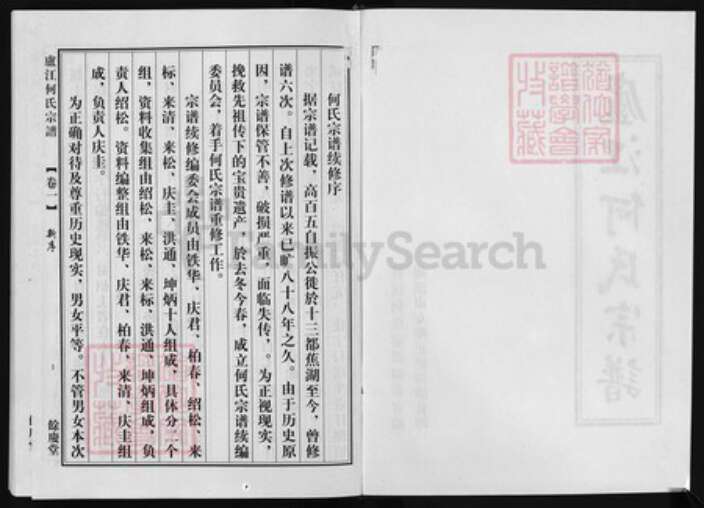 何氏宗谱续修序
据宗谱记载，高百五自振公徙於十三都蕉湖至今，曾修
谱六次。自上次修谱以来已旷八十八年之久。由于历史原
因，宗谱保管不善，破损严重，面临失传，。为正视现实，
挽救先祖传下的宝贵遗产，於去冬今春，成立何氏宗谱续编
委员会，着手何氏宗谱重修工作。
宗谱续修编委会成员由铁华、庆君、柏春、绍松、来
标、来清、来松、庆圭、洪通、坤炳十人组成，具体分二个
组，资料收集组由绍松、来松、来标、洪通、坤炳组成，负
责人绍松。资料编整组由铁华、庆君、柏春、来清、庆圭组
成，负责人庆圭。
为正确对待及尊重历史现实，男女平等。不管男女本次
廬江何氏宗譜
【卷一】
新序
餘慶堂
廬江何氏宗譜
FamilySearch